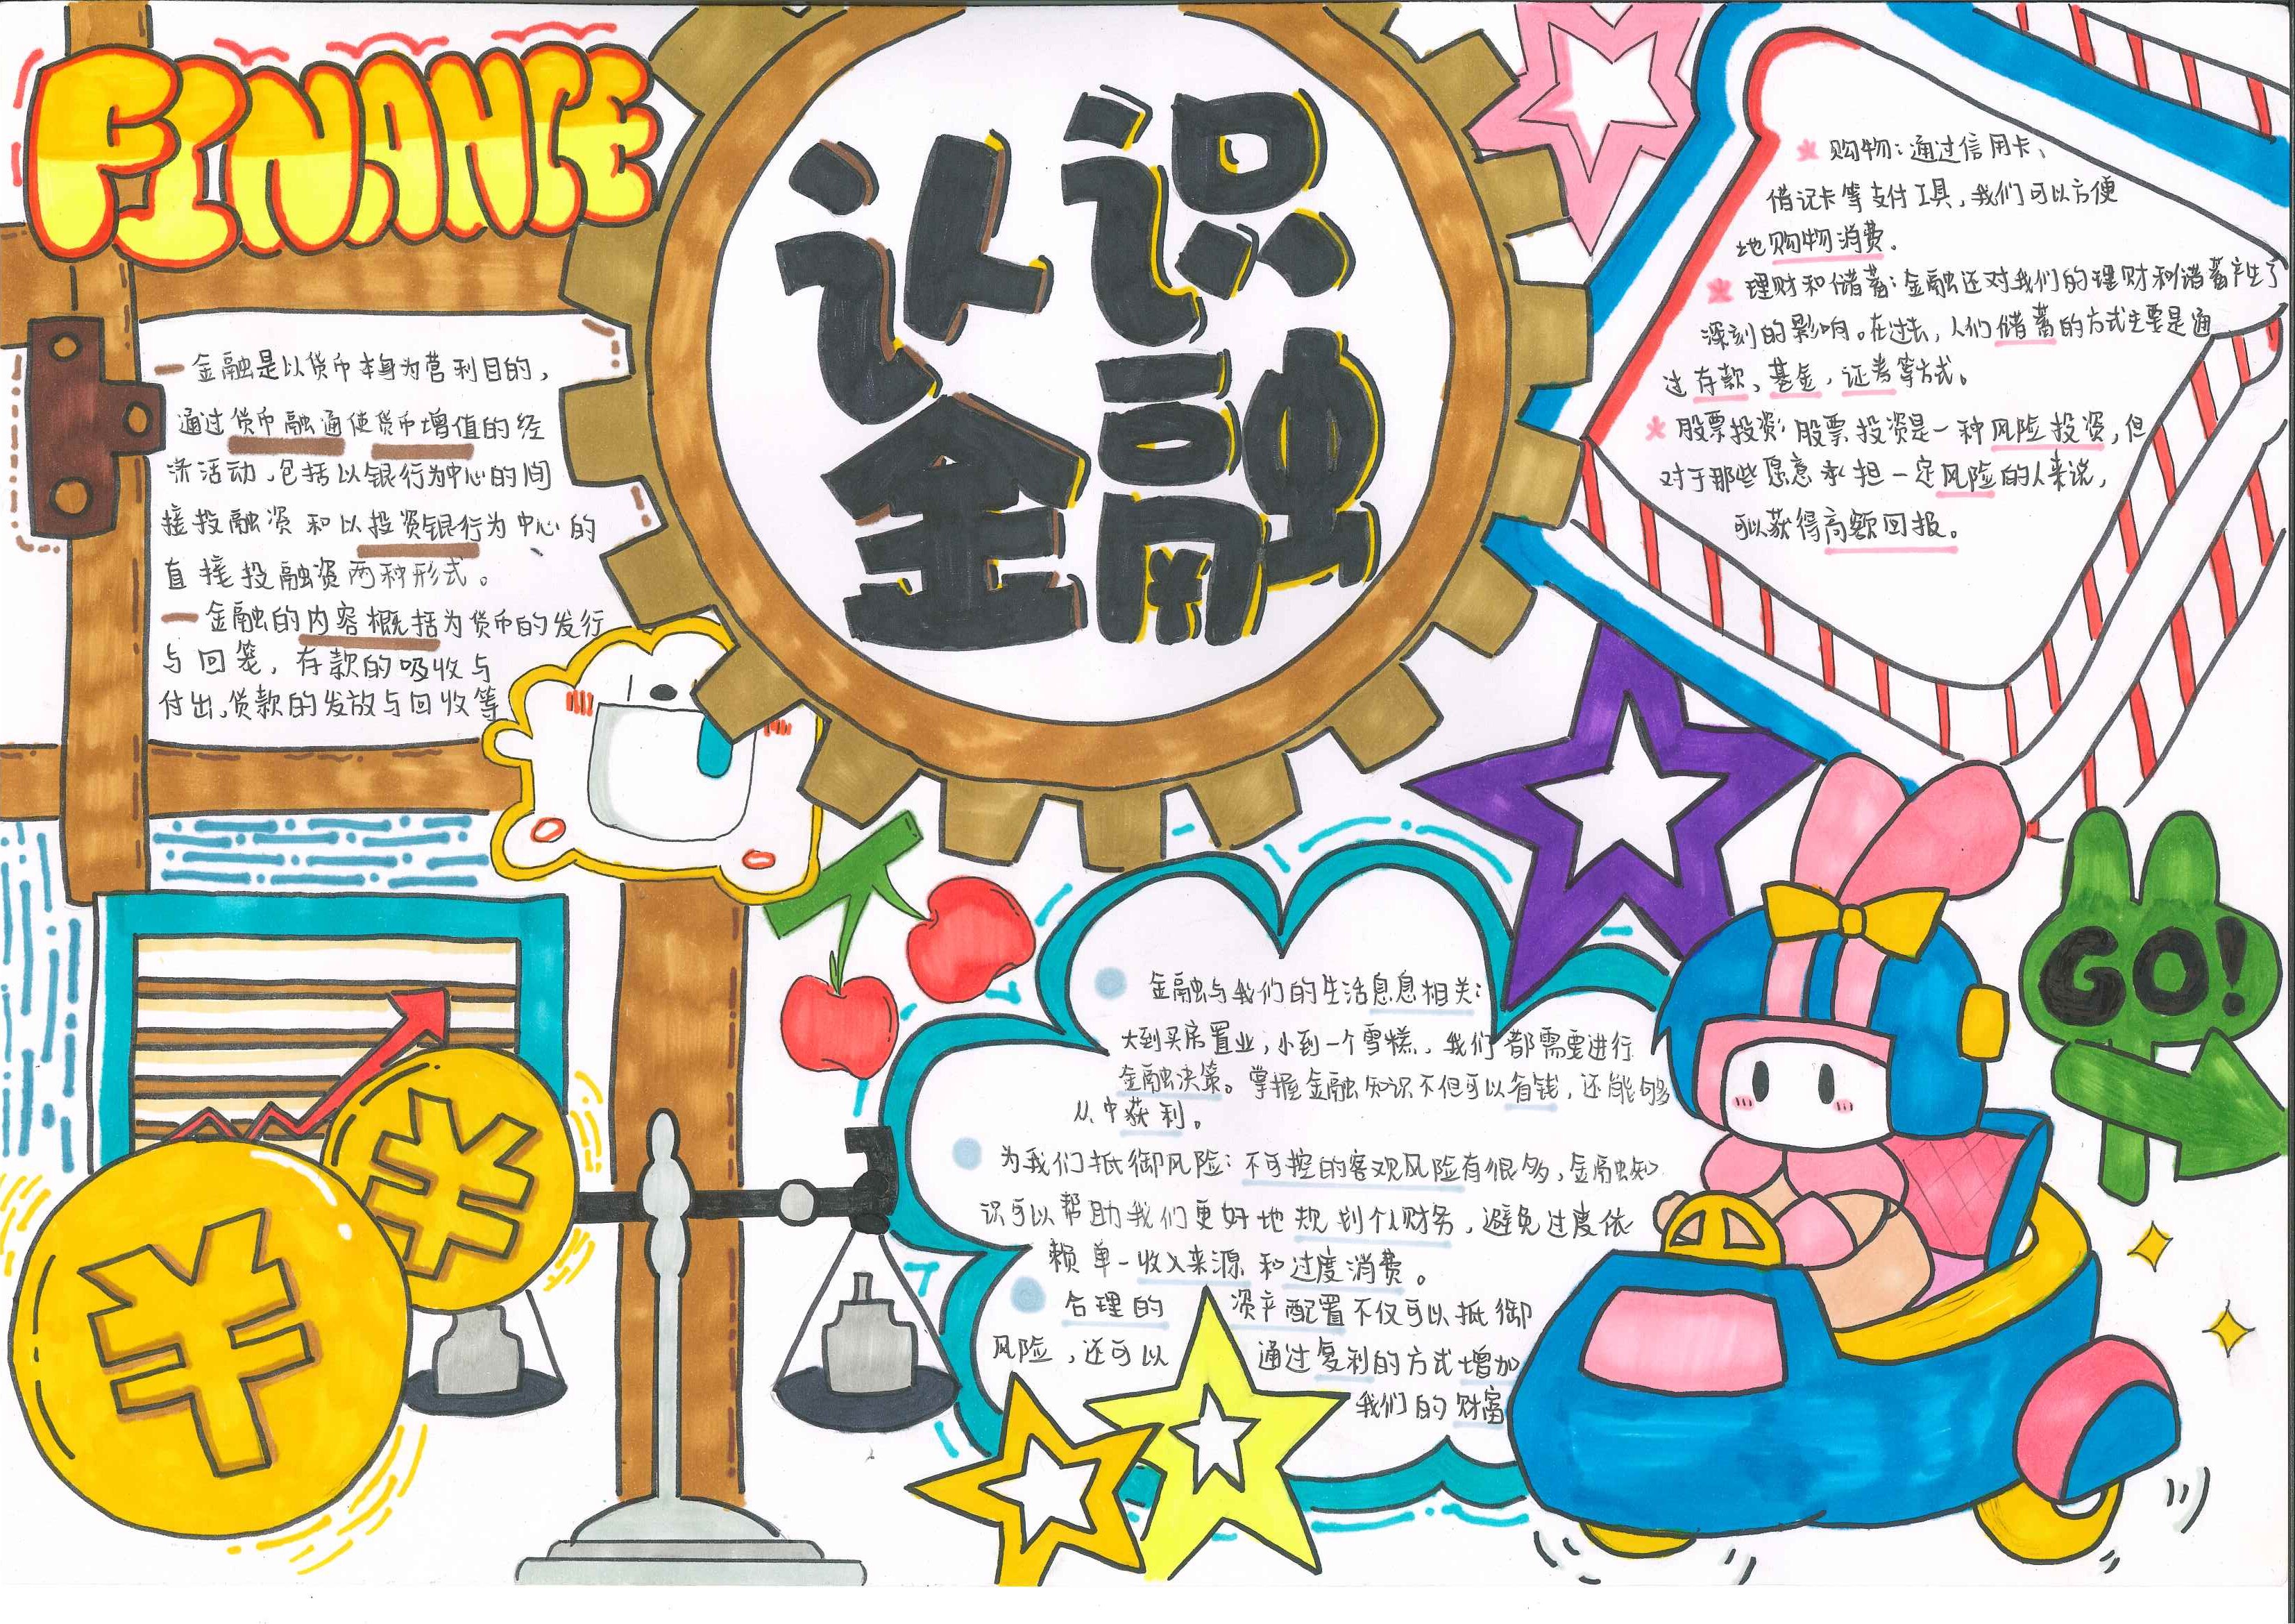 FINANCE
认识
金融
金融是以货币本身为营利目的，
通过货币融通使货币增值的经
济活动，包括以银行为中心的间
接投融资和以投资银行为中心的
直接投融资两种形式。
金融的内容概括为货币的发行
与回笼，存款的吸收与
付出，贷款的发放与回收等
购物：通过信用卡、
借记卡等支付工具，我们可以方便
地购物消费。
理财和储蓄：金融还对我们的理财和储蓄产生了
深刻的影响。在过去，人们储蓄的方式主要是通
过存款、基金，证券等方式。
股票投资：股票投资是一种风险投资，但
对于那些愿意承担一定风险的人来说，
可以获得高额回报。
金融与我们的生活息息相关：
大到买房置业，小到一个雪糕，我们都需要进行
金融决策。掌握金融知识不但可以省钱，还能够
从中获利。
为我们抵御风险：不可控的客观风险有很多，金融知
识可以帮助我们更好地规划个人财务，避免过度依
赖单一收入来源和过度消费。
合理的资产配置不仅可以抵御
风险，还可以通过复利的方式增加
我们的财富
GO!
¥
¥